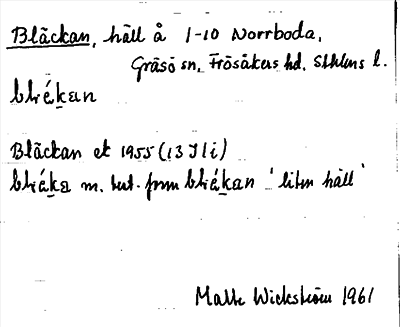 Bläckan, häll å 1-10 Norrboda,
Gräsö sn, Frösåkers hd, Sthlms l.
Bläckan ek 1955 (13 I l i)
m. best. form 'liten häll'
Malte Wickström 1961